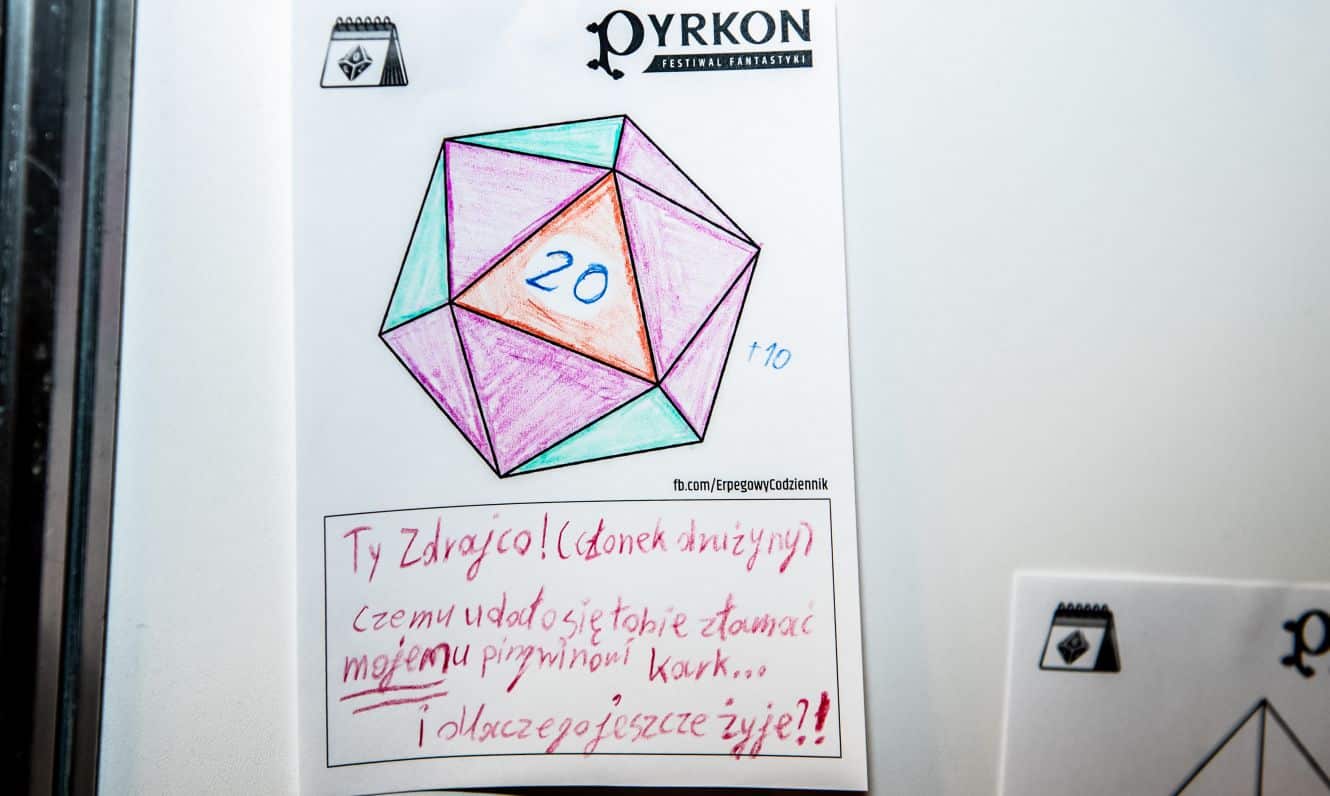 PYRKON
FESTIWAL FANTASTYKI
20
+10
fb.com/ErpegowyCodziennik
Ty Zdrajco! (członek drużyny)
czemu udało się tobie złamać
mojemu pingwinowi kark...
i dlaczego jeszcze żyje?!
P